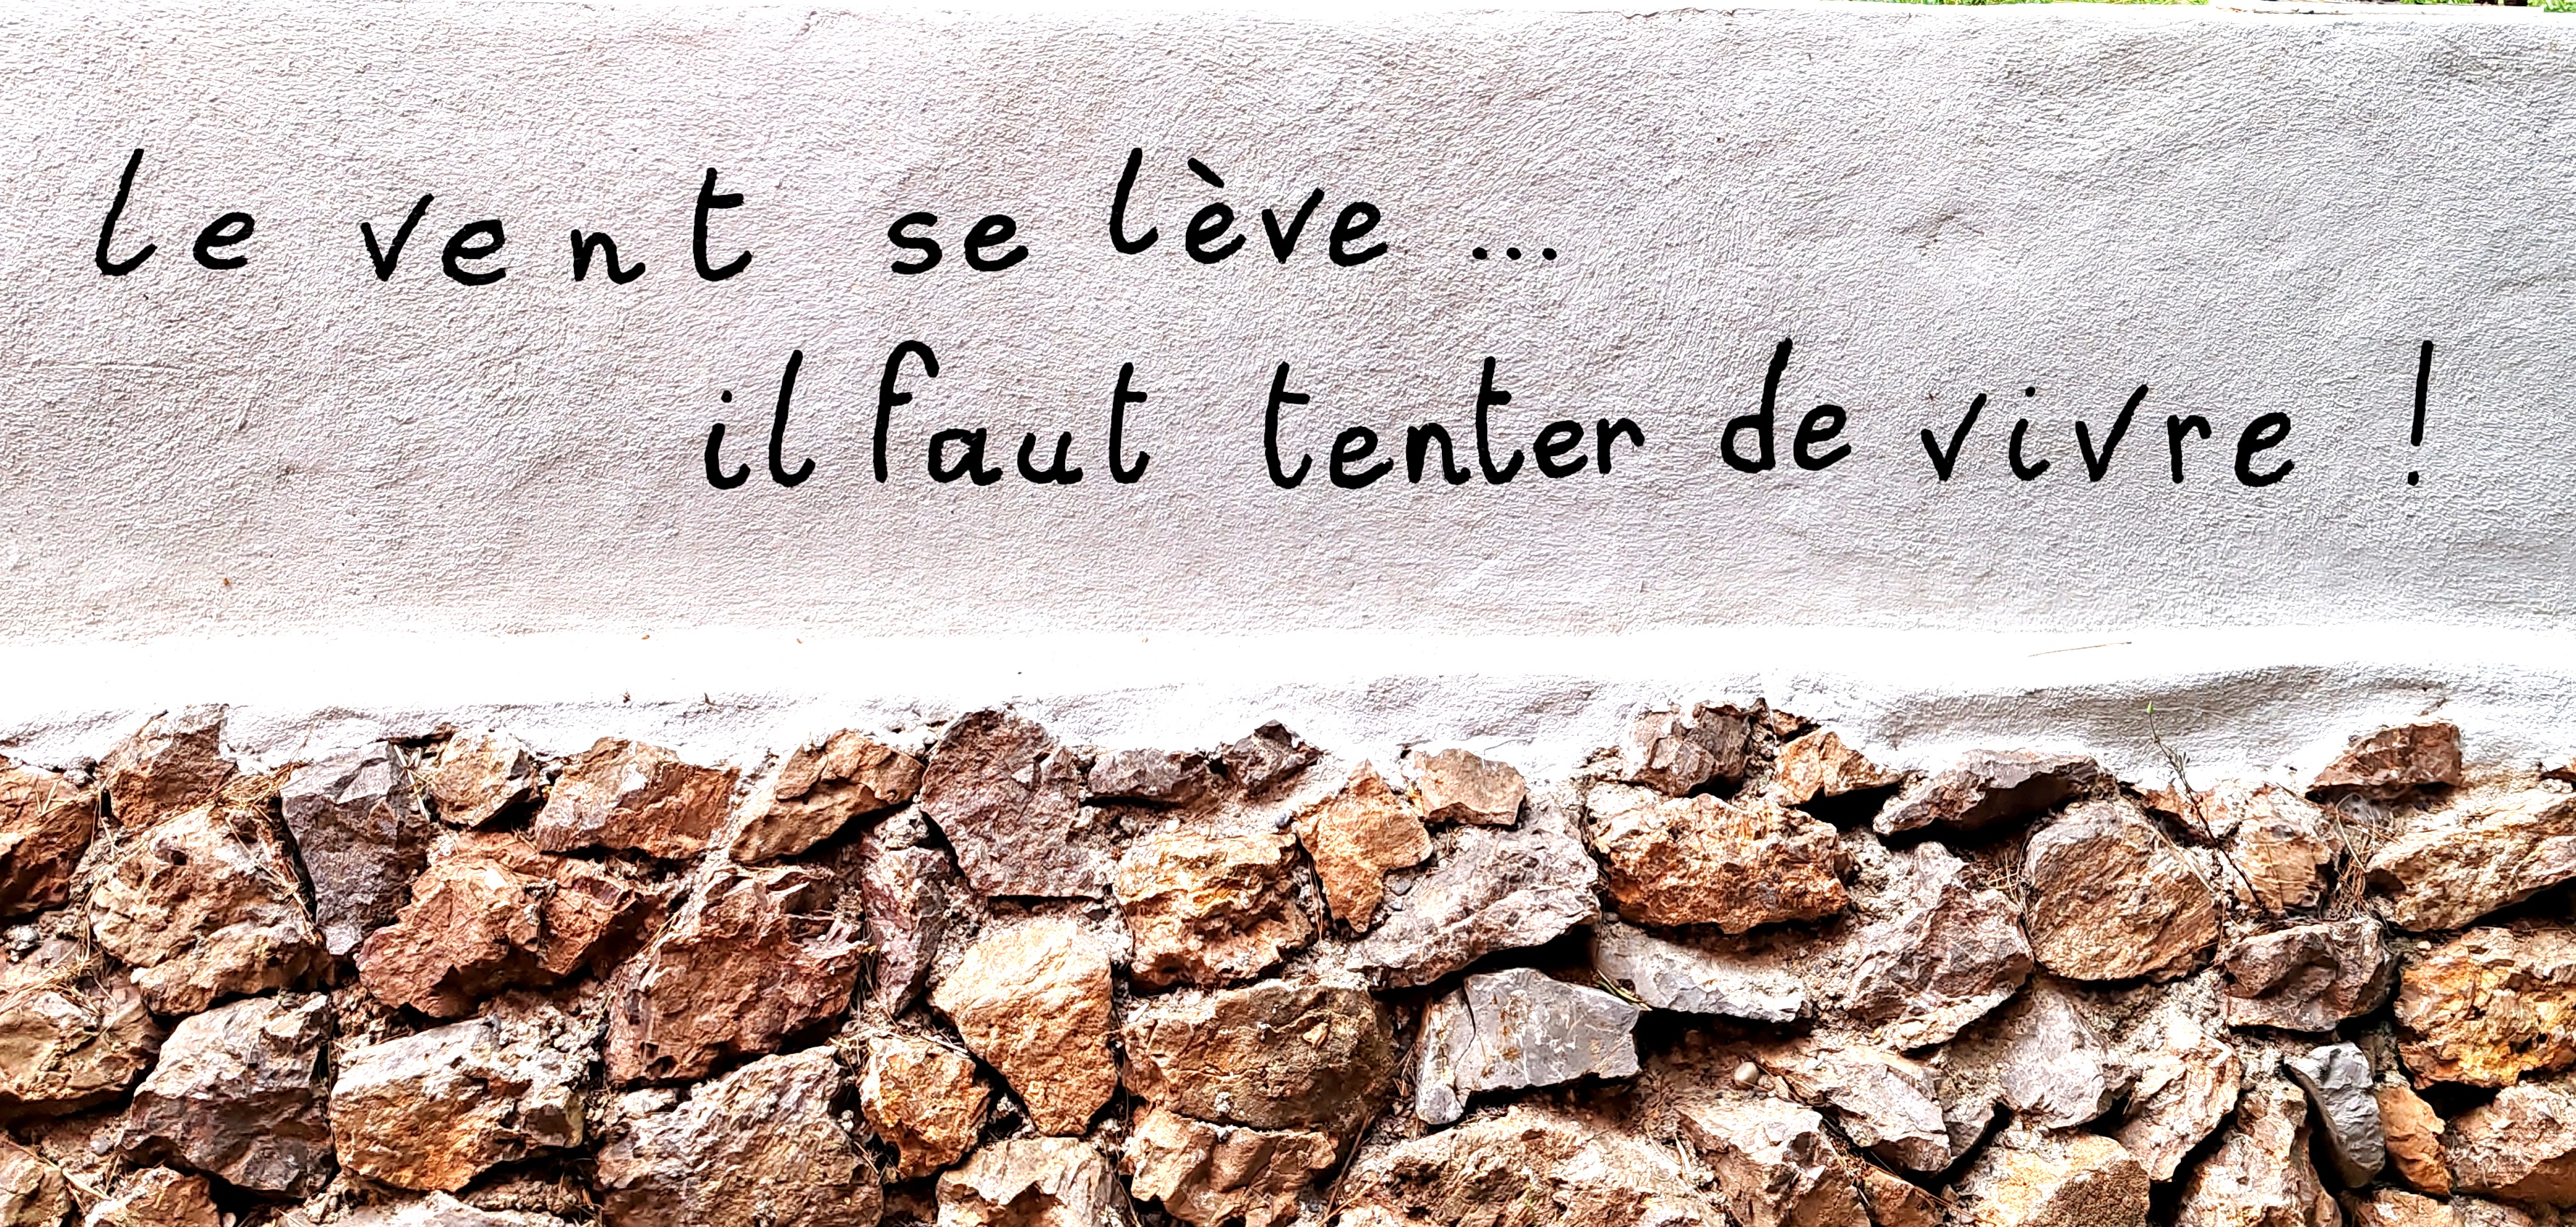 le vent se lève ...
il faut tenter de vivre !